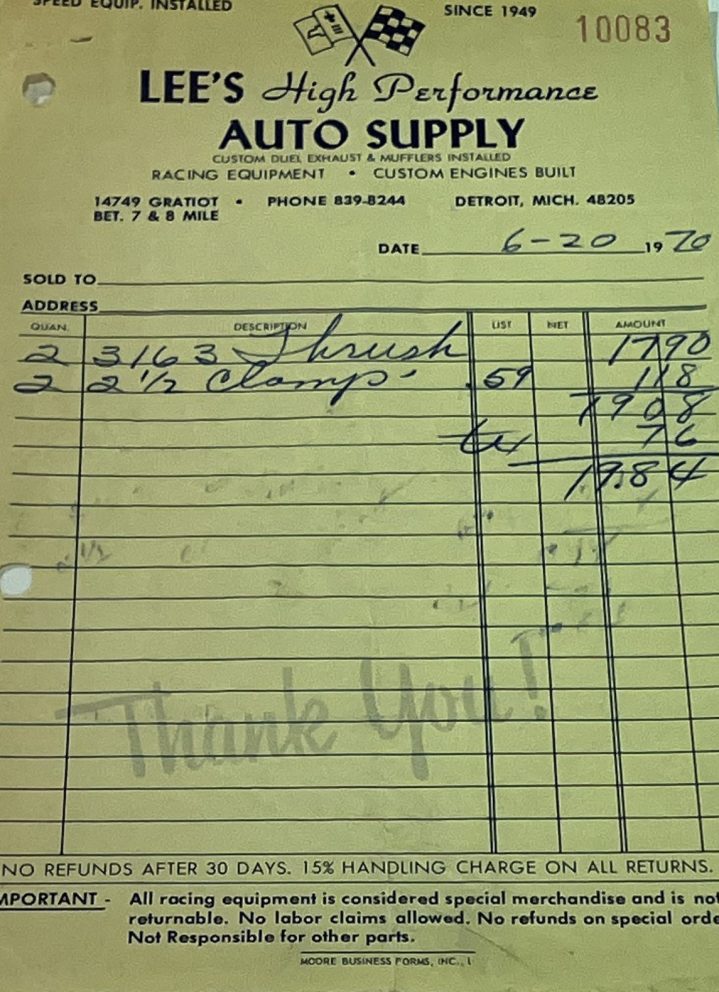 SPEED EQUIP. INSTALLED
SINCE 1949
10083
LEE'S High Performance
AUTO SUPPLY
CUSTOM DUEL EXHAUST & MUFFLERS INSTALLED
RACING EQUIPMENT • CUSTOM ENGINES BUILT
14749 GRATIOT • PHONE 839-8244 DETROIT, MICH. 48205
BET. 7 & 8 MILE
DATE 6-20 1970
SOLD TO
ADDRESS
QUAN. DESCRIPTION LIST NET AMOUNT
2 3163 Thrush 17 90
2 2 1/2 Clamp .59 1 18
19 08
tax 76
19.84
Thank You!
NO REFUNDS AFTER 30 DAYS. 15% HANDLING CHARGE ON ALL RETURNS.
MPORTANT - All racing equipment is considered special merchandise and is not
returnable. No labor claims allowed. No refunds on special orde
Not Responsible for other parts.
MOORE BUSINESS FORMS, INC., 1